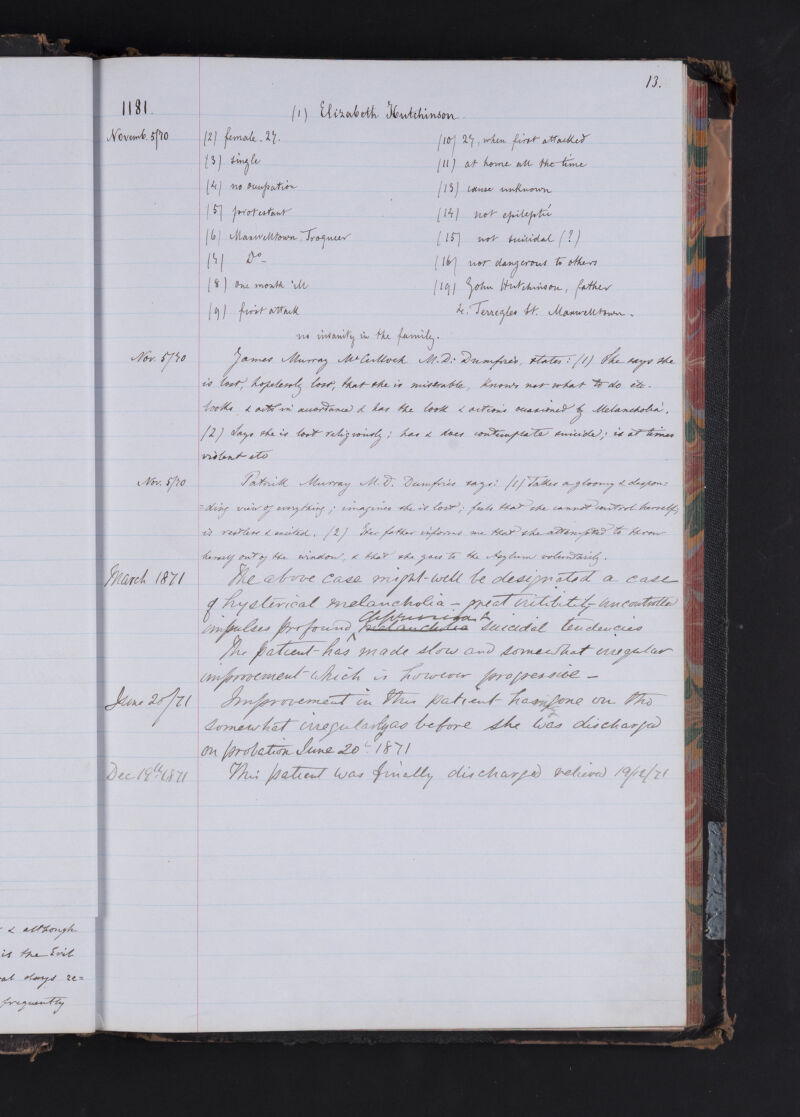 13.
1181. (1) Elizabeth Hutchinson
Novemb. 5/70 (2) female. 27. (10) 27, when first attacked
(3) single (11) at home all the time
(4) no occupation (13) cause unknown
(5) protestant (14) not epileptic
(6) Maxwelltown, Troqueer (15) not suicidal (?)
(7) Do- (16) not dangerous to others
(8) one month (19) John Hutchinson, father
(9) first attack Terregles St. Maxwelltown.
no insanity in the family.
Nov. 5/70 James Murray McCulloch M.D: Dumfries, states: (1) She says she
is lost, hopelessly lost, that she is miserable, knows not what to do etc.
looks & acts in accordance & has the look & actions occasioned by Melancholia.
(2) Says she is lost religiously; has & does contemplate suicide; is at times
violent etc
Nov. 5/70 Patrick Murray M.D. Dumfries says: (1) Takes a gloomy & despon=
=ding view of everything; imagines she is lost; feels that she cannot control herself;
is restless & excited. (2) Her father informs me that she attempted to throw
herself out of the window, & that she goes to the Asylum voluntarily.
March 1871 The above case might well be designated a case
of hysterical melancholia - great irritability uncontrolled
impulses profound melancholia depression & suicidal tendencies
The patient has made slow and somewhat irregular
improvement which is however progressive -
June 20/71 Improvement in this patient having gone on tho
somewhat irregularly as before she was discharged
on probation June 20th 1871
Dec 19th 1871 This patient was finally discharged relieved 19/12/71
& although
is the Evil
days re=
frequently